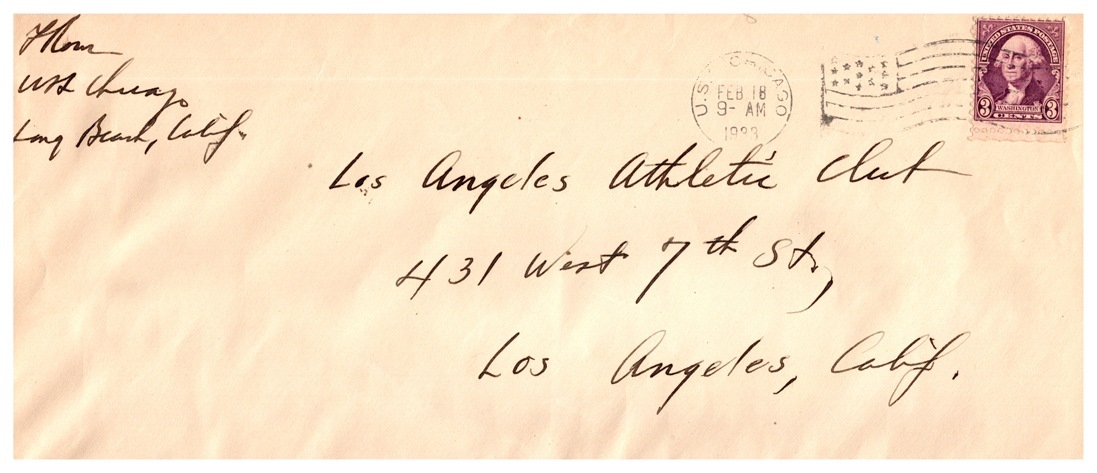 USS Chicago
Long Beach, Calif.
U.S.S. CHICAGO
FEB 18
9- AM
1933
UNITED STATES POSTAGE
3 WASHINGTON 3
CENTS
Los Angeles Athletic Club
431 West 7th St.,
Los Angeles, Calif.